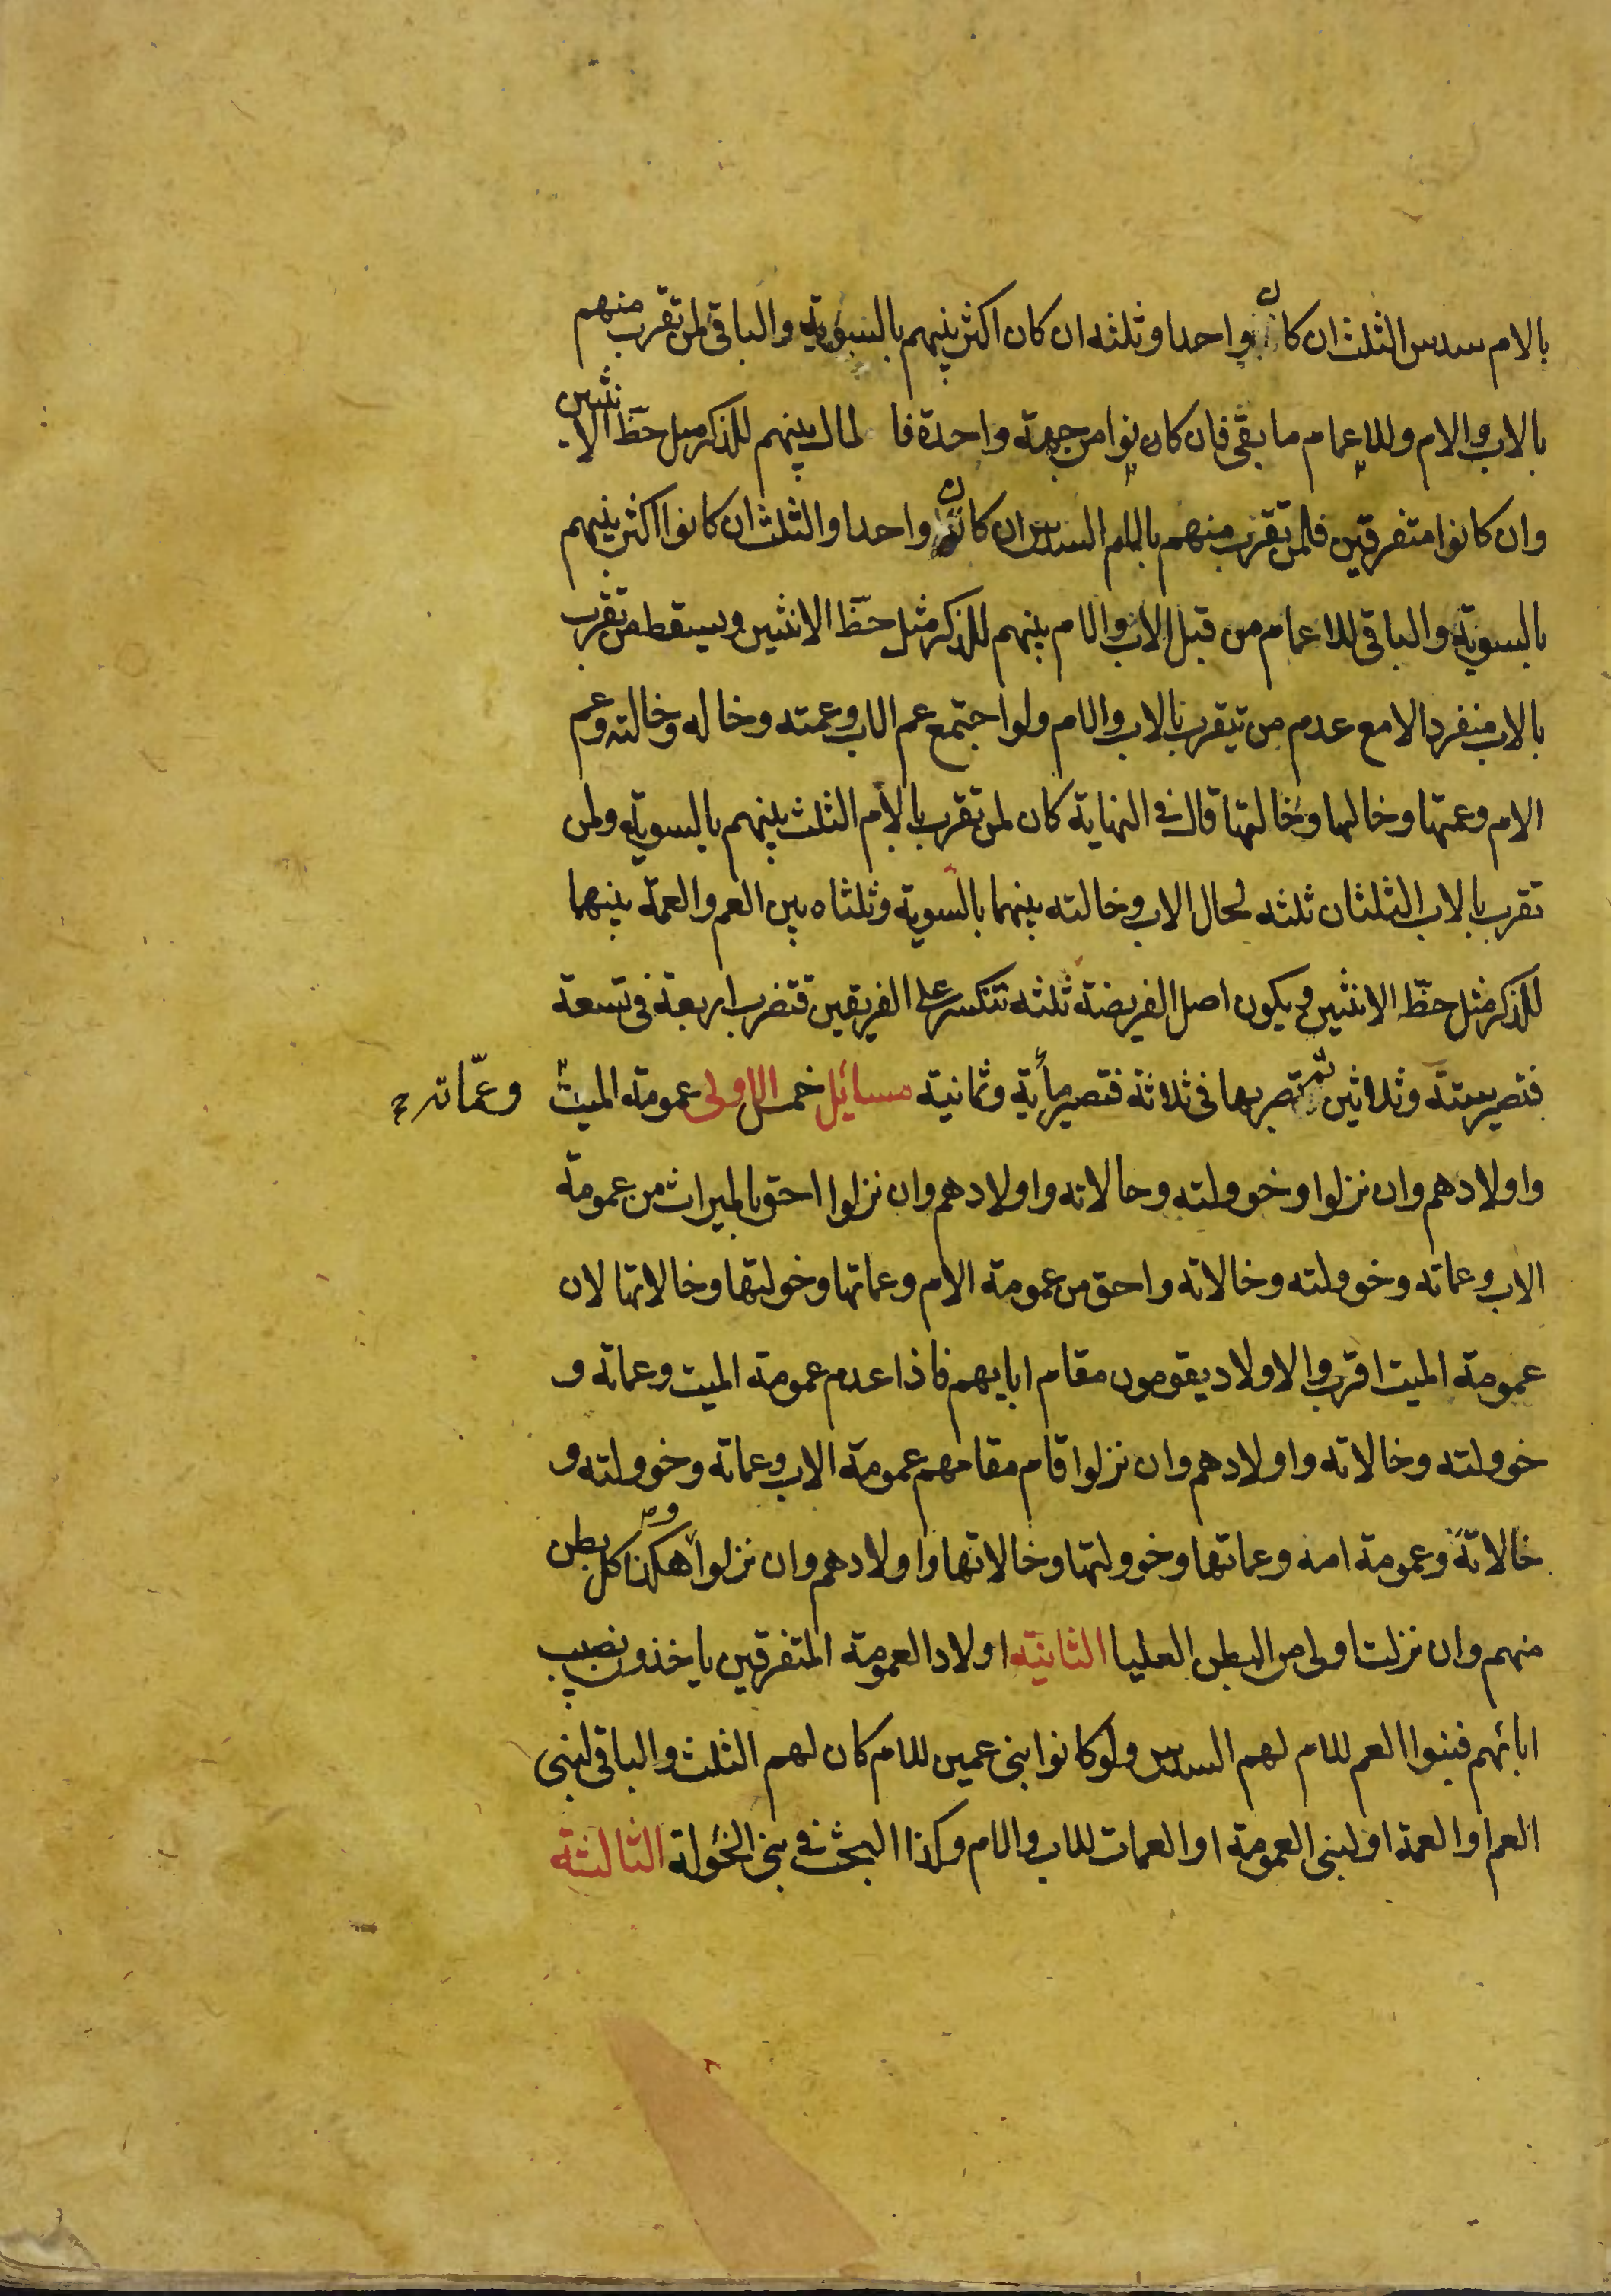 بالام سدس الثلث ان كان واحدا وثلثه ان كان اكثر بينهم بالسوية والباقي لمن تقرب منهم
بالاب والام وللاعمام ما بقي فان كانوا من جهة واحدة فالمال بينهم للذكر مثل حظ الانثيين
وان كانوا متفرقين فلمن تقرب منهم بالام السدس ان كان واحدا والثلث ان كانوا اكثر بينهم
بالسوية والباقي للاعمام من قبل الاب والام بينهم للذكر مثل حظ الانثيين ويسقط من تقرب
بالاب منفردا الا مع عدم من يتقرب بالاب والام ولو اجتمع عم الاب وعمته وخاله وخالته وعم
الام وعمتها وخالها وخالتها قال في النهاية كان لمن تقرب بالام الثلث بينهم بالسوية ولمن
تقرب بالاب الثلثان ثلثه لخال الاب وخالته بينهما بالسوية وثلثاه بين العم والعمة بينهما
للذكر مثل حظ الانثيين ويكون اصل الفريضة ثلثه تنكسر على الفريقين فتضرب اربعة في تسعة
فتصير ستة وثلاثين ثم تضربها في ثلاثة فتصير مأية وثمانية مسائل خمس الاولى عمومة الميت وعمّاته
واولادهم وان نزلوا وخوولته وخالاته واولادهم وان نزلوا احق بالميراث من عمومة
الاب وعماته وخوولته وخالاته واحق من عمومة الام وعماتها وخولتها وخالاتها لان
عمومة الميت اقرب والاولاد يقومون مقام ابايهم فاذا عدم عمومة الميت وعماته و
خوولته وخالاته واولادهم وان نزلوا قام مقامهم عمومة الاب وعماته وخوولته و
خالاته وعمومة امه وعماتها وخوولتها وخالاتها واولادهم وان نزلوا وهكذا كل بطن
منهم وان نزلت اولى من البطن العليا الثانية اولاد العمومة المتفرقين ياخذون نصيب
ابائهم فبنوا العم للام لهم السدس ولو كانوا بني عمين للام كان لهم الثلث والباقي لبني
العم او العمة او لبني العمومة او العمات للاب والام وكذا البحث في بني الخئولة الثالثة